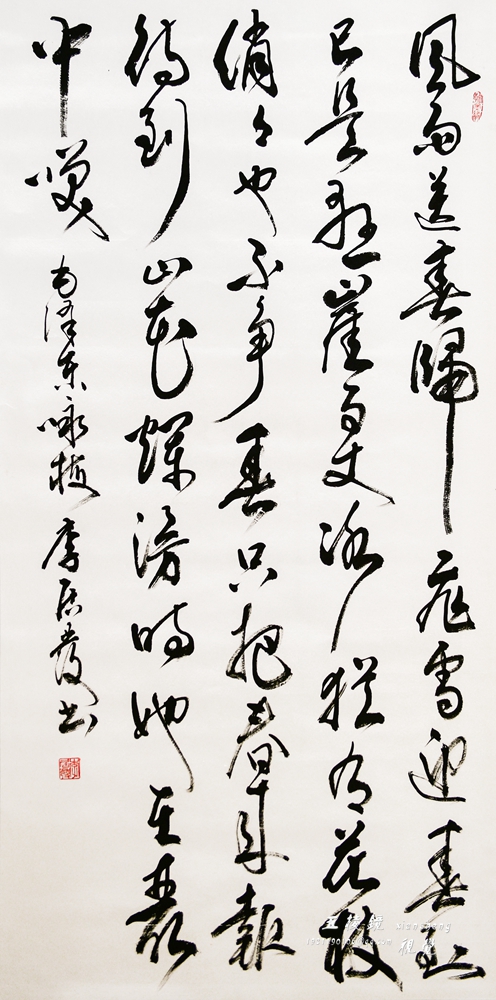 風雨送春歸飛雪迎春到
已是懸崖百丈冰猶有花枝
俏々也不争春只把春来報
待到山花爛漫時她在叢
中咲 毛澤東咏梅 李居發书